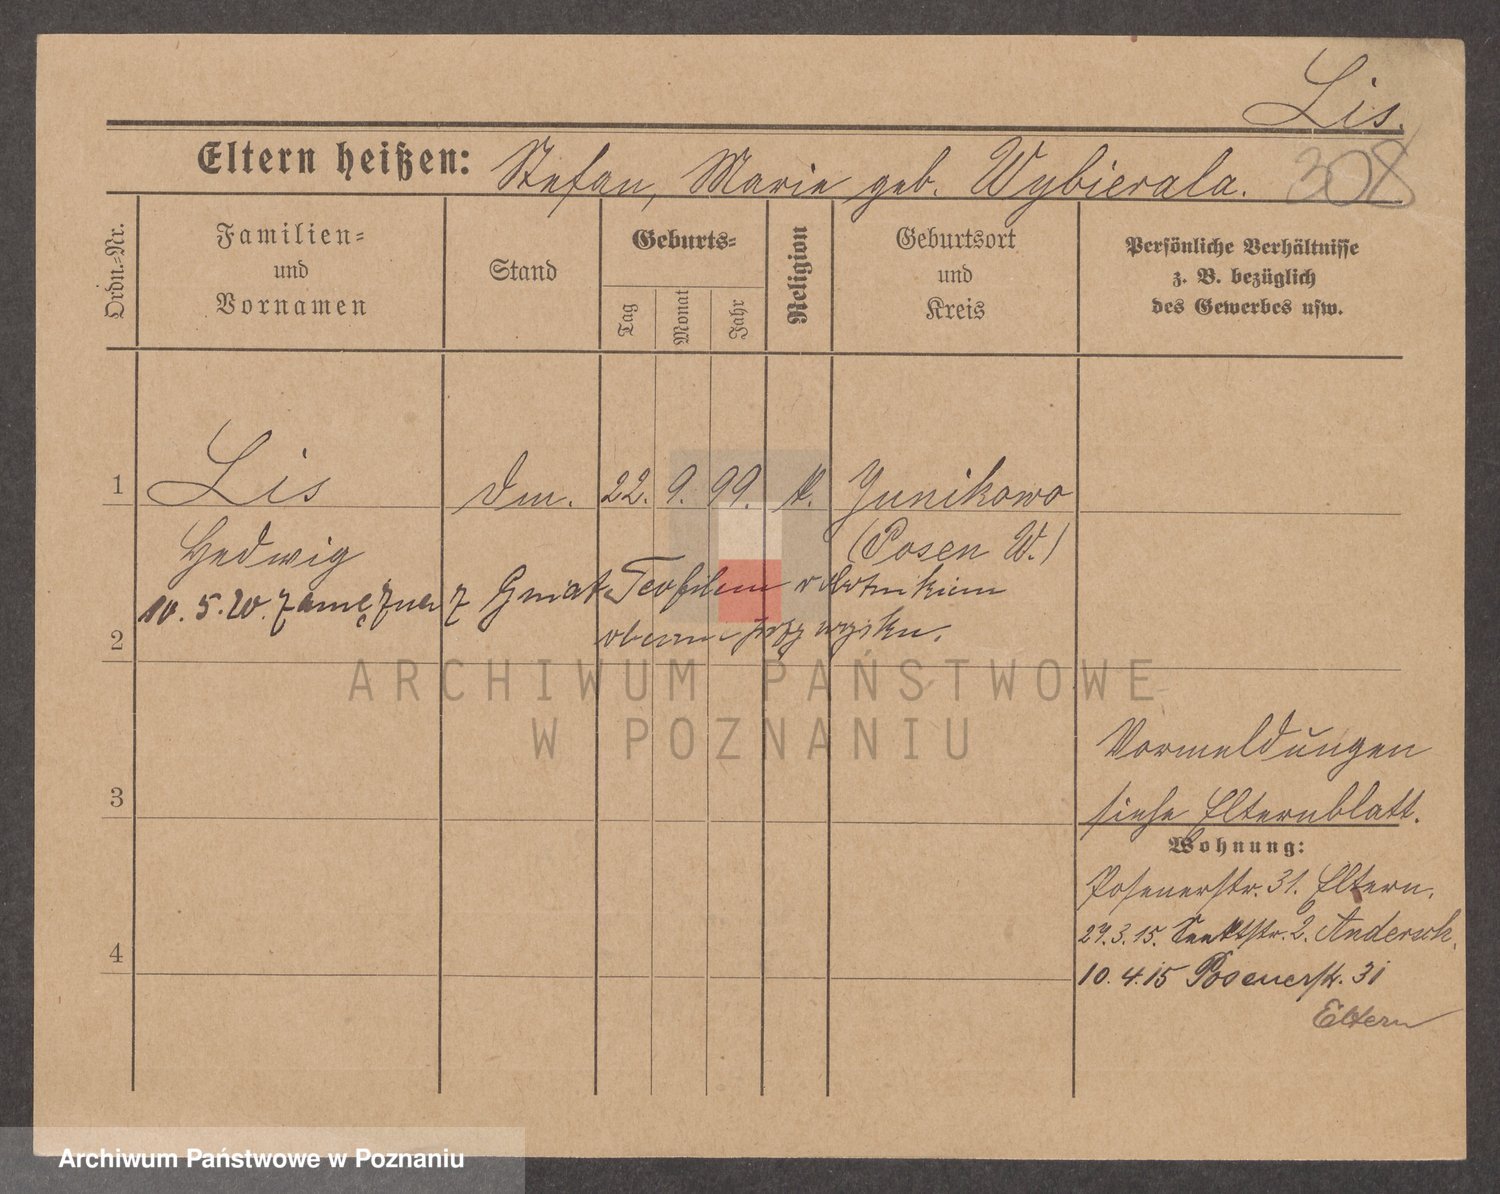 Lis.
Eltern heißen: Stefan, Marie geb. Wybierala.
308
Ordn.-Nr.
Familien-
und
Vornamen
Stand
Geburts-
Tag
Monat
Jahr
Religion
Geburtsort
und
Kreis
Persönliche Verhältnisse
z. B. bezüglich
des Gewerbes usw.
1
Lis
Dm. 22. 9. 99. k. Junikowo
Hedwig
(Posen W.)
10. 5. 20. zamężna z Teofilem robotnikiem
2
3
Vormeldungen
siehe Elternblatt.
Wohnung:
Posenerstr. 31. Eltern.
27.3.15. 2. Andersch.
4
10.4.15 Posenerstr. 31
Eltern
ARCHIWUM PAŃSTWOWE
W POZNANIU
Archiwum Państwowe w Poznaniu